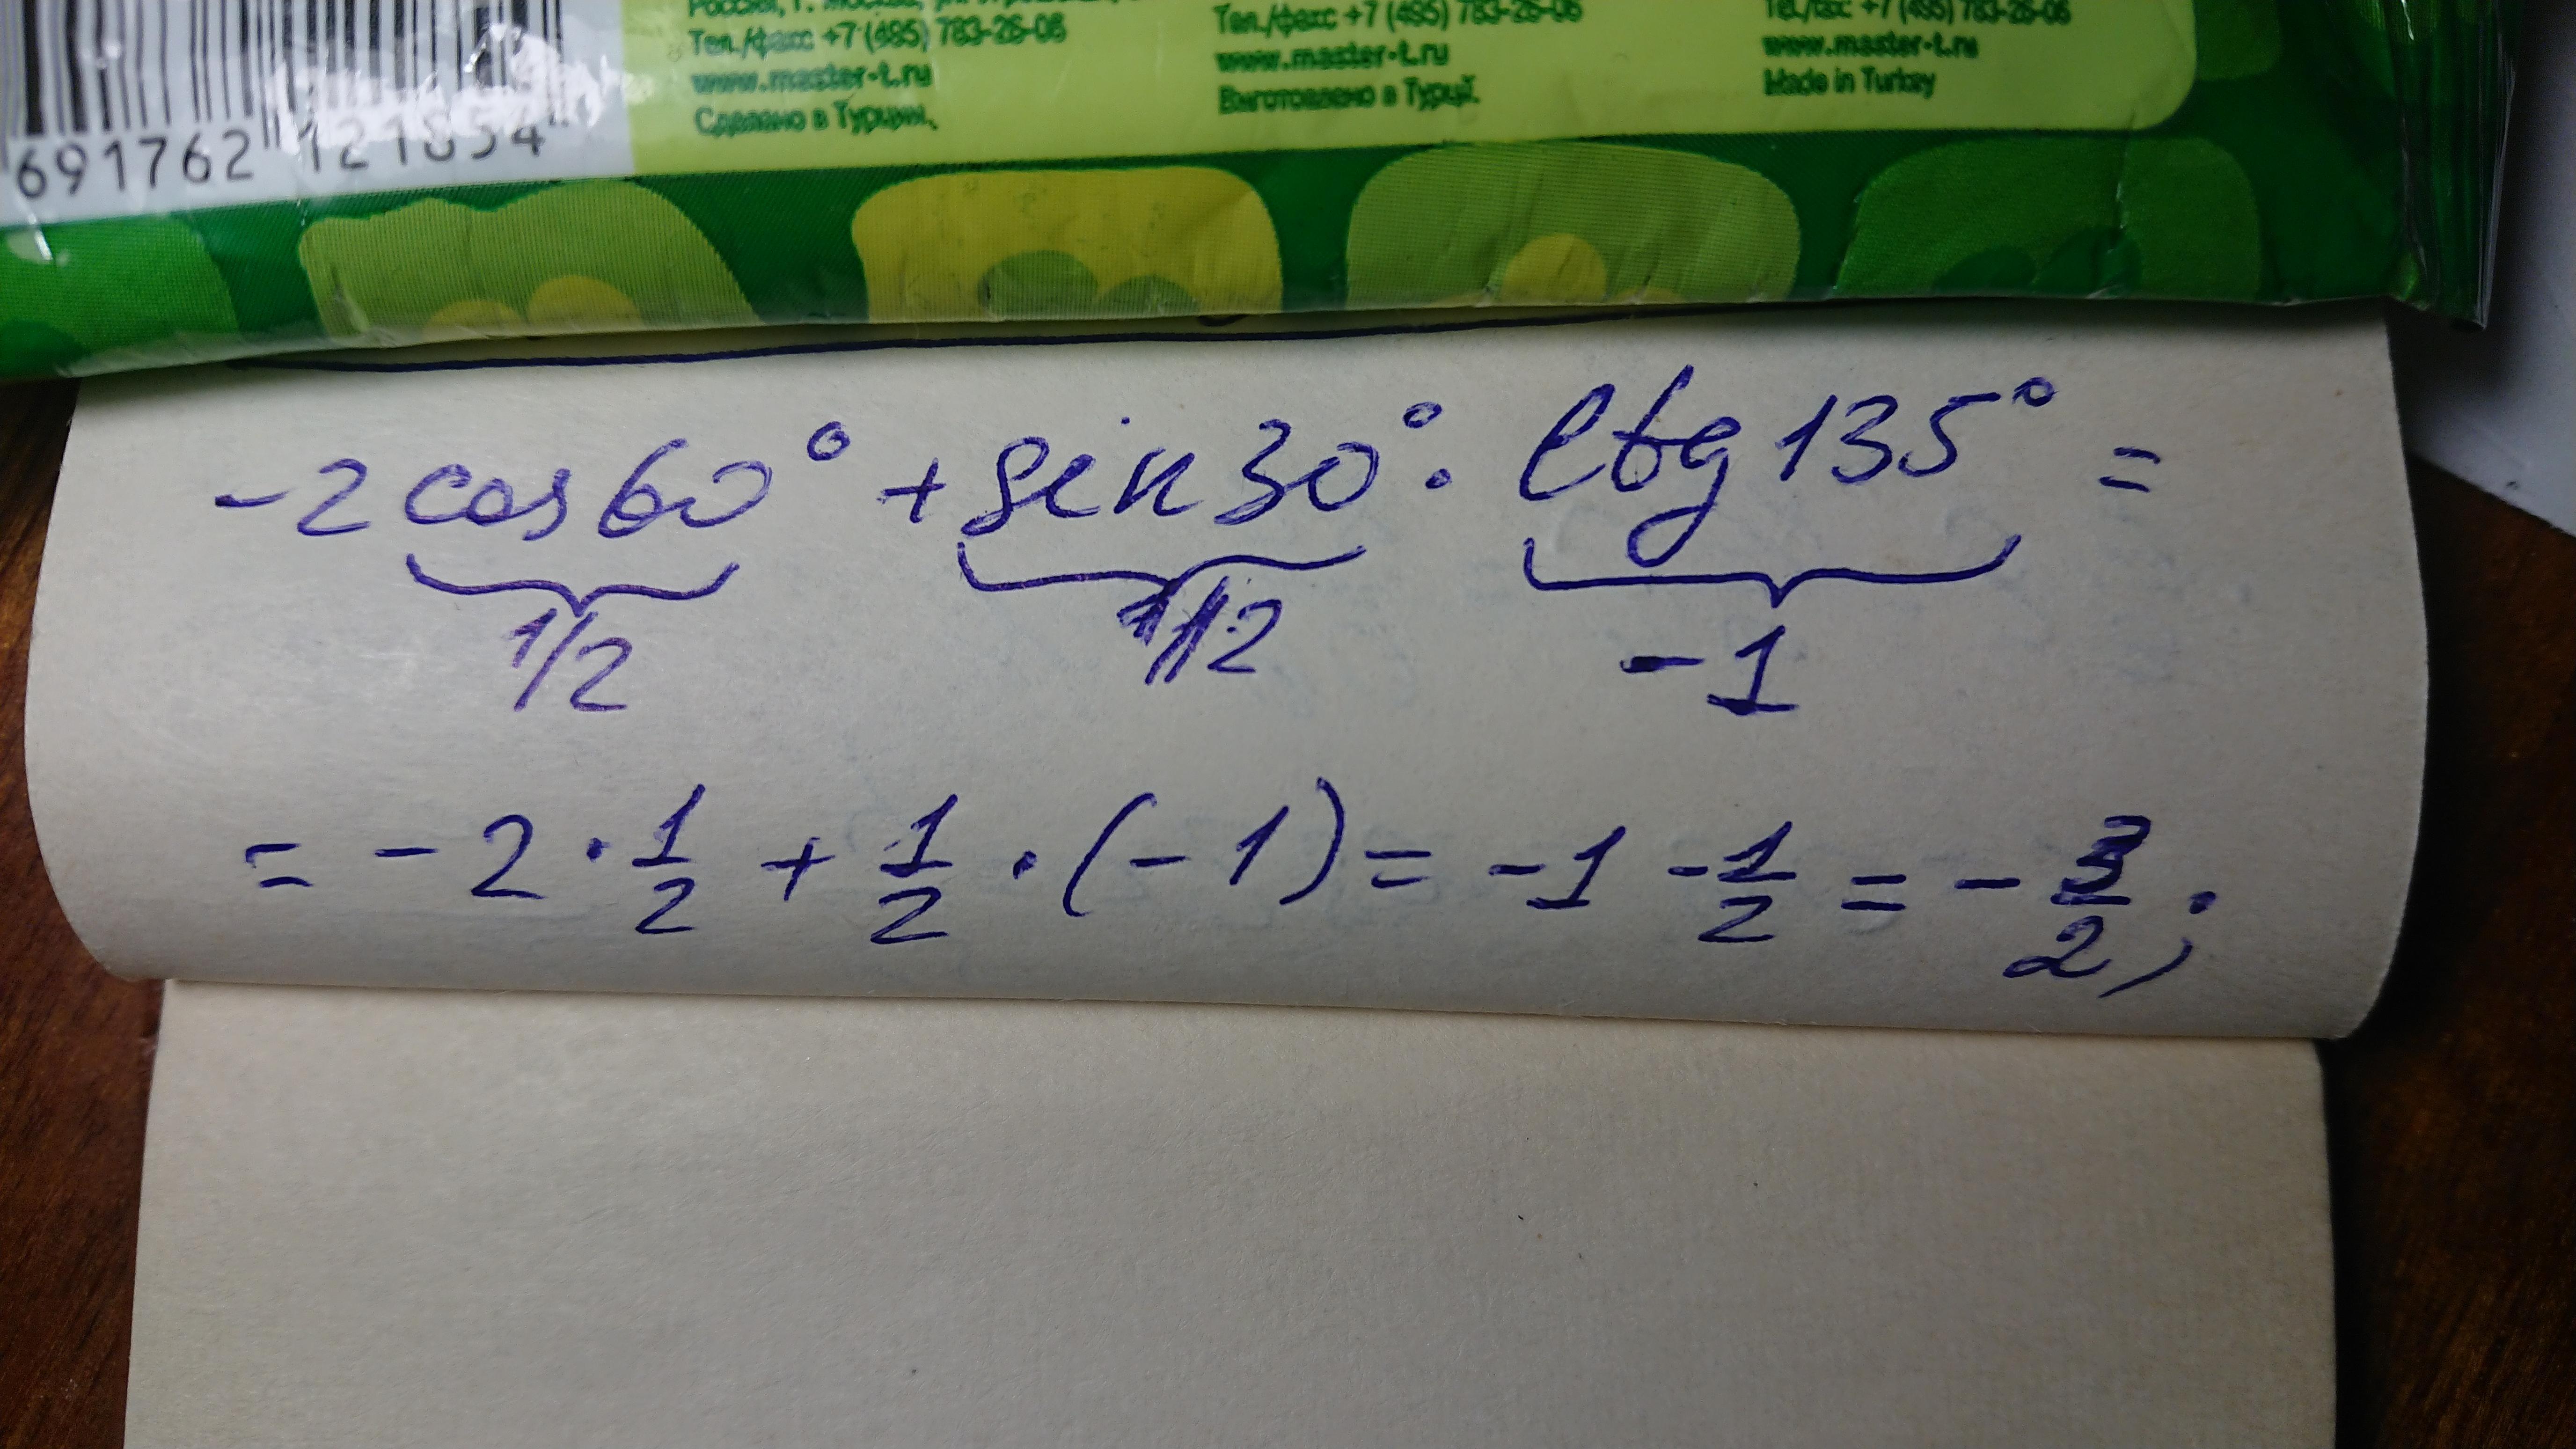 691762 121854
Тел./факс +7 (495) 783-26-06
www.master-t.ru
Сделано в Турции.
Тел./факс +7 (495) 783-26-06
www.master-t.ru
Виготовлено в Турції.
Tel./fax: +7 (495) 783-26-06
www.master-t.ru
Made in Turkey
-2 cos 60° + sin 30° · ctg 135° =
1/2 1/2 -1
= - 2 · 1/2 + 1/2 · (-1) = -1 - 1/2 = - 3/2 ;